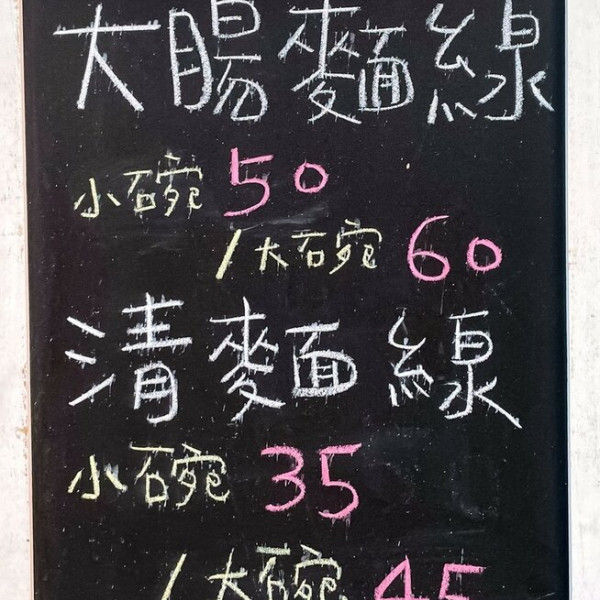 大腸麵線
小碗 50
/大碗 60
清麵線
小碗 35
/大碗 45